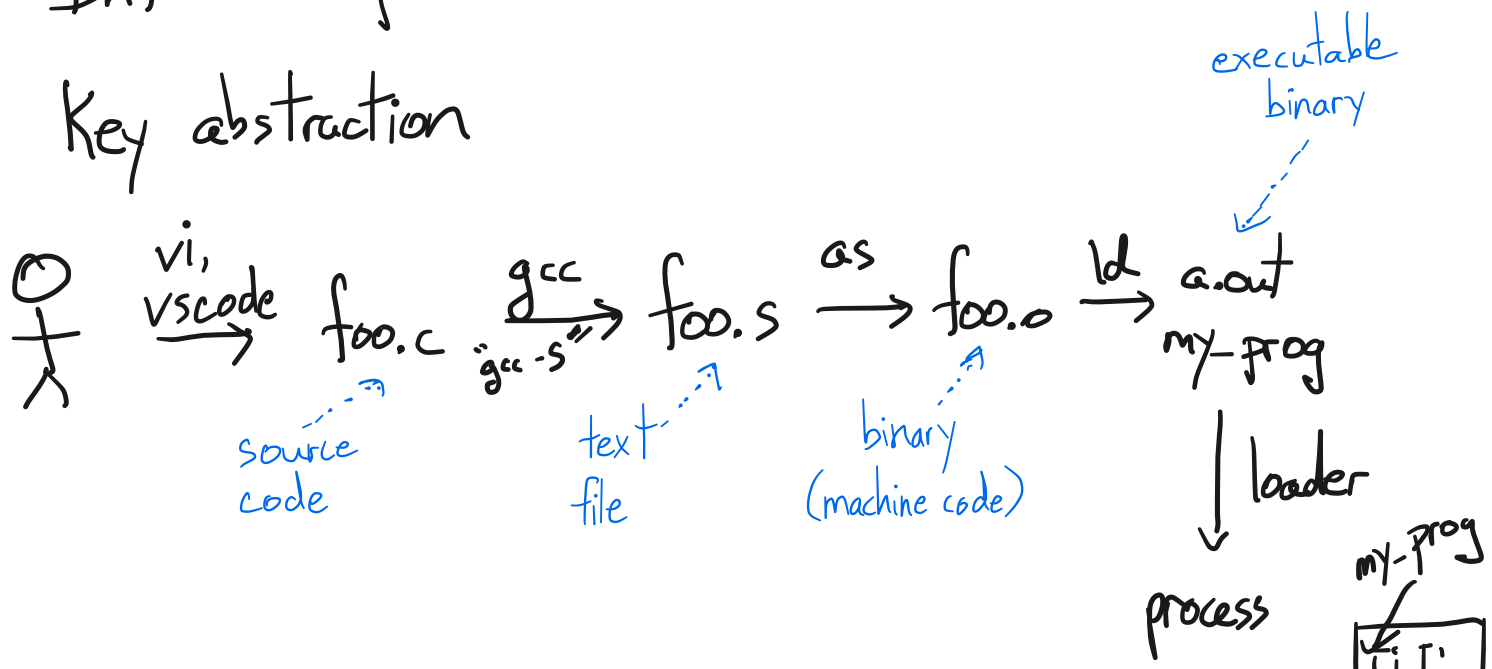 Key abstraction
executable
binary
vi,
vscode
foo.c
gcc
"gcc -S"
foo.s
as
foo.o
ld
a.out
my_prog
source
code
text
file
binary
(machine code)
loader
process
my-prog